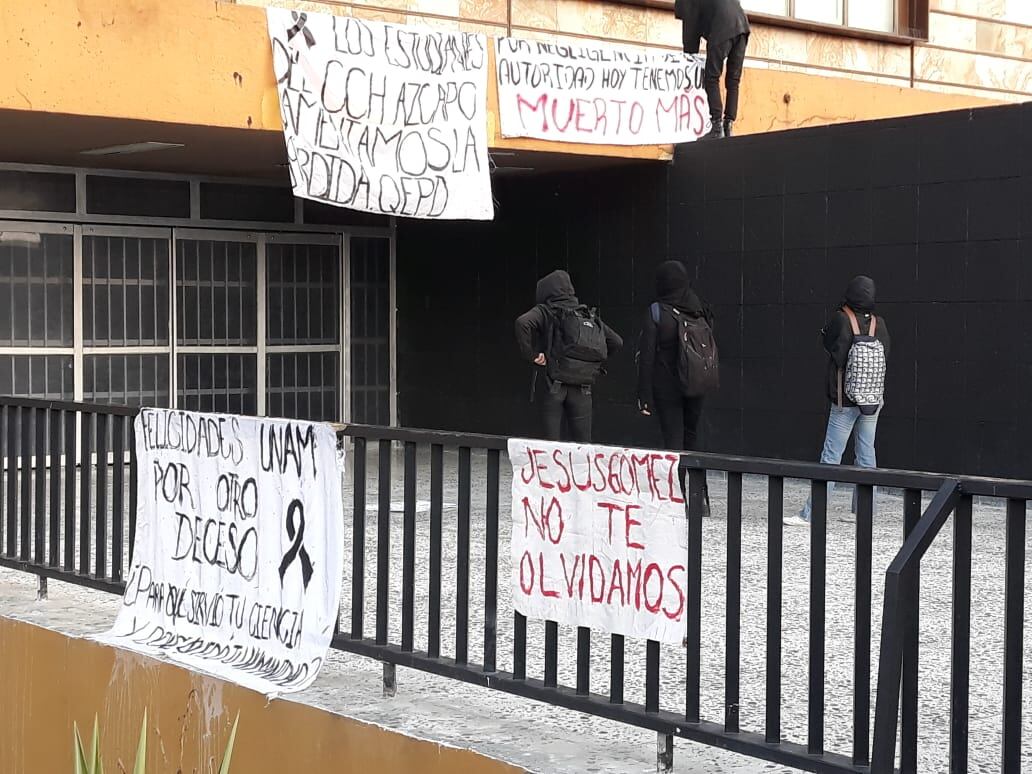 LOS ESTUDIANTES
DEL CCH AZCAPO
LAMENTAMOS LA
PÉRDIDA. QEPD
POR NEGLIGENCIA DE
AUTORIDAD HOY TENEMOS UN
MUERTO MÁS
FELICIDADES UNAM
POR OTRO
DECESO
¿PARA QUE SIRVIÓ TU CIENCIA
Y
JESUS GOMEZ
NO TE
OLVIDAMOS